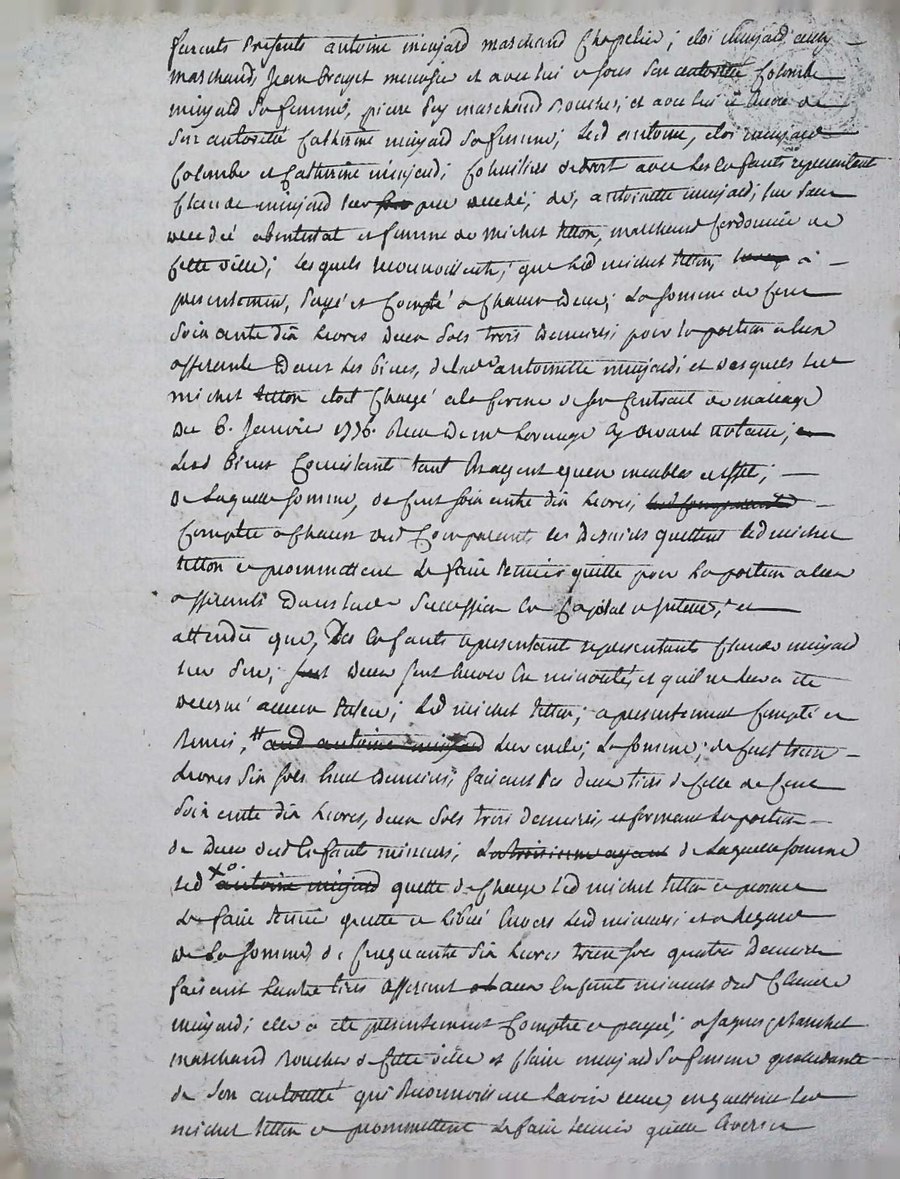 furents presents antoine minjard marchand Chapelier; eloi minjard aussy
marchand, Jean Brayet menusier et avec lui et sous son autorité Colombe
minjard sa femme, pierre Rey marchand Boucher; et avec lui et de
son autorité Catherine minjard sa femme; lesd antoine, eloi minjard
Colombe et Catherine minjard; Cohéritiers de droit avec les enfants representant
Claude minjard leur frere décédé; de, antoinette minjard; leur sœur
decedée abintestat et femme de michel titton, marchand Cordonnier de
Cette ville; lesquels reconnoissent; que led michel titton, a
presentement, payé et Compté a Chacun d'eux; la somme de Cent
soixante dix livres deux sols trois deniers; pour la portion a eux
afferente dans les biens, de lade antoinette minjard; et desquels led
michel titton etoit Chargé a la forme de son Contrait de mariage
du 6. Janvier 1776. Recu de me notaire;
lesd biens Consistants tant En argent qu'en meubles et effet;
de Laquelle somme, de Cent soixante dix livres,
Comptée a Chacun des Comparants les derniers quittent led michel
titton et promettent le faire tenir quitte pour la portion a eux
afferente dans lade succession en Capital et interet; et
attendu que, les Enfants representants Claude minjard
leur pere; deux sont encore En minorité, et qu'il ne leur a été
decerné aucun tuteur; led michel titton; a presentement Compté et
Remis, aud antoine minjard leur oncle; la somme; de Cent treize
livres dix sols huit deniers; faisant les deux tiers de Celle de Cent
soixante dix livres, deux sols trois deniers, et formant la portion
de deux desd Enfants mineurs; de Laquelle somme
led antoine minjard quitte de Charge led michel titton et promet
le faire tenir quitte et liberé Envers lesd mineurs; et a l'Egard
de la somme de Cinquante six livres treize sols quatre deniers
faisant l'autre tiers afferent aux Enfants mineurs dud Claude
minjard; elle a été presentement Comptée et payée; a Jaques planchet
marchand Boucher de Cette ville et Claire minjard sa femme procedante
de son autorité qui Reconnoissent l'avoir recue, en quittent led
michel titton et promettent le faire tenir quitte Envers et